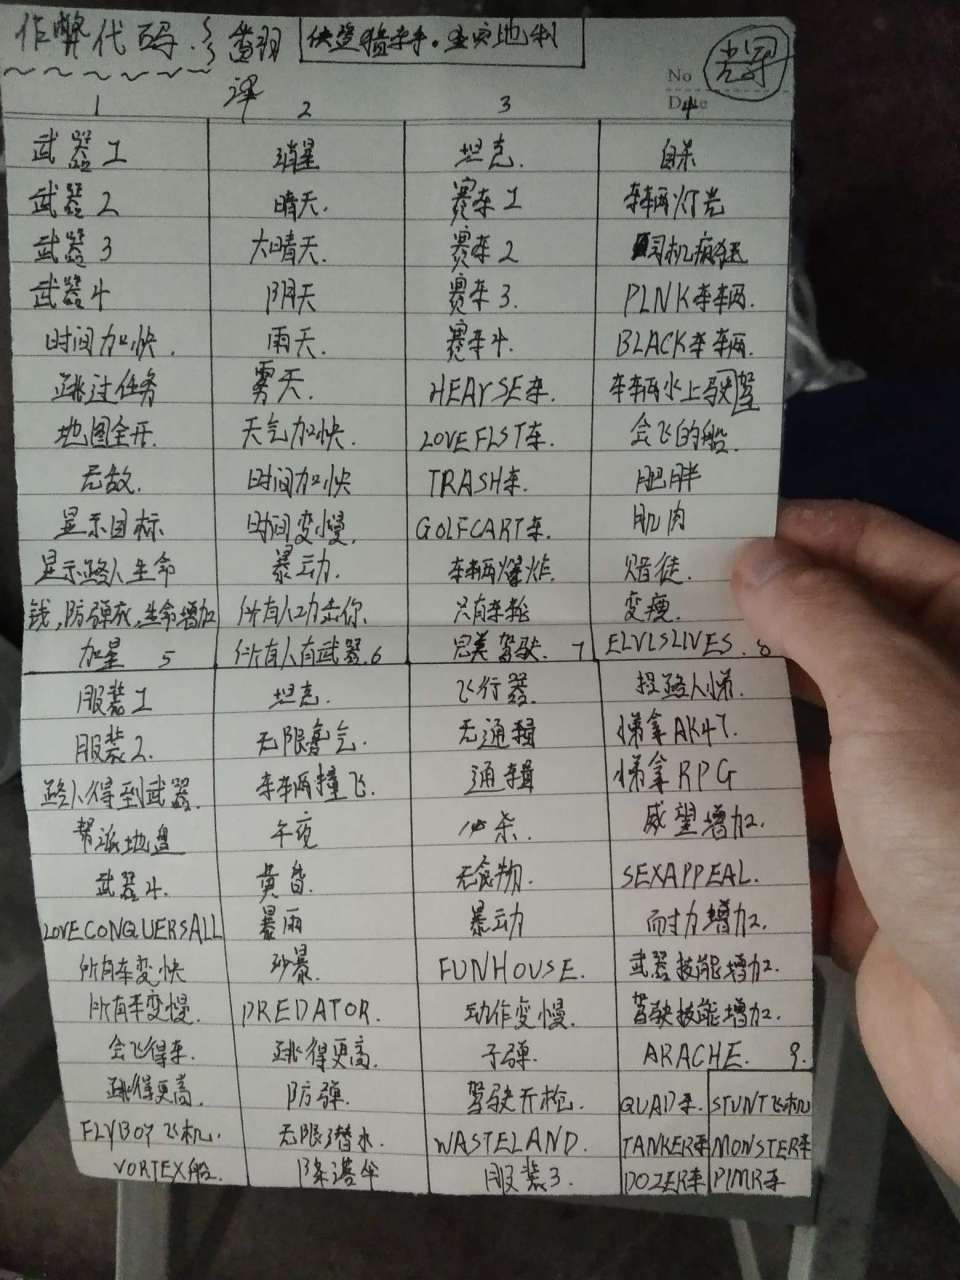 作弊代码. 翻译 侠盗猎车手.圣安地列
No
Date
1 2 3 4
武器1 消星 坦克. 自杀
武器2 晴天. 赛车1 车辆灯光
武器3 大晴天. 赛车2 司机疯狂
武器4 阴天 赛车3. PLNK车辆.
时间加快. 雨天. 赛车4. BLACK车辆.
跳过任务 雾天. HEARSE车. 车辆水上驾驶
地图全开. 天气加快. LOVEFLST车. 会飞的船.
无敌. 时间加快 TRASH车. 肥胖
显示目标 时间变慢. GOLFCART车. 肌肉
显示路人生命 暴动. 车辆爆炸. 赌徒.
钱,防弹衣,生命增加 所有人功击你. 只有车轮 变瘦.
加星 5 所有人有武器.6 完美驾驶. 7 ELVLSLIVES. 8
服装1 坦克. 飞行器. 招路人
服装2. 无限氧气. 无通辑 拿AK47.
路人得到武器. 车辆撞飞. 通辑 拿RPG
帮派地盘 午夜 杀. 威望增加.
武器4. 黄昏. 无食物. SEXAPPEAL.
LOVECONQUERSALL 暴雨 暴动 耐力增加.
所有车变快 沙暴. FUNHOUSE. 武器技能增加.
所有车变慢. PREDATOR. 动作变慢. 驾驶技能增加.
会飞得车. 跳得更高. 子弹. ARACHE. 9.
跳得更高. 防弹. 驾驶开枪. QUAD车. STUNT飞机
FLYBOY飞机. 无限潜水. WASTELAND. TANKER车 MONSTER车
VORTEX船. 降落伞 服装3. DOZER车 PIMR车